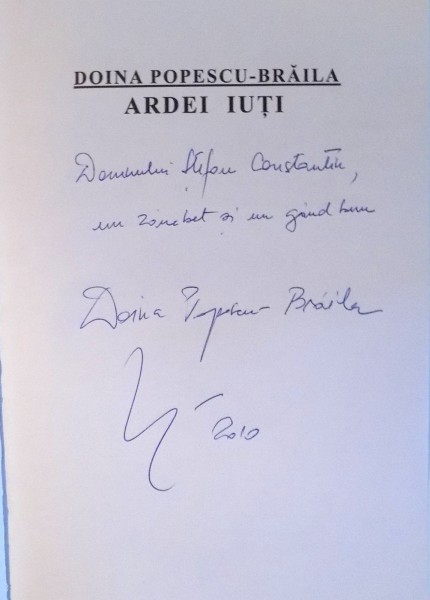 DOINA POPESCU-BRĂILA
ARDEI IUȚI
Domnului Ștefan Constantin,
un zâmbet și un gând bun
Doina Popescu Brăila
2010